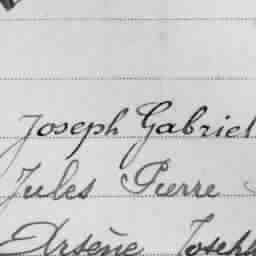 Joseph Gabriel
Jules Pierre
Arsène Joseph